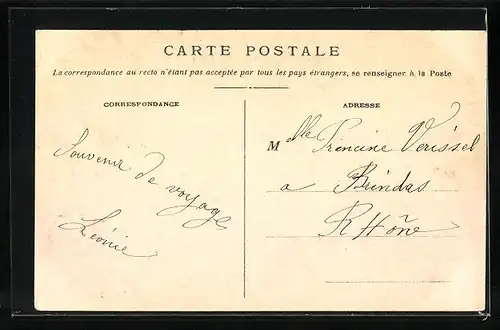 CARTE POSTALE
La correspondance au recto n'étant pas acceptée par tous les pays étrangers, se renseigner à la Poste
CORRESPONDANCE
Souvenir
de voyage
Léonie
ADRESSE
Melle Francine Verissel
a Brindas
Rhône